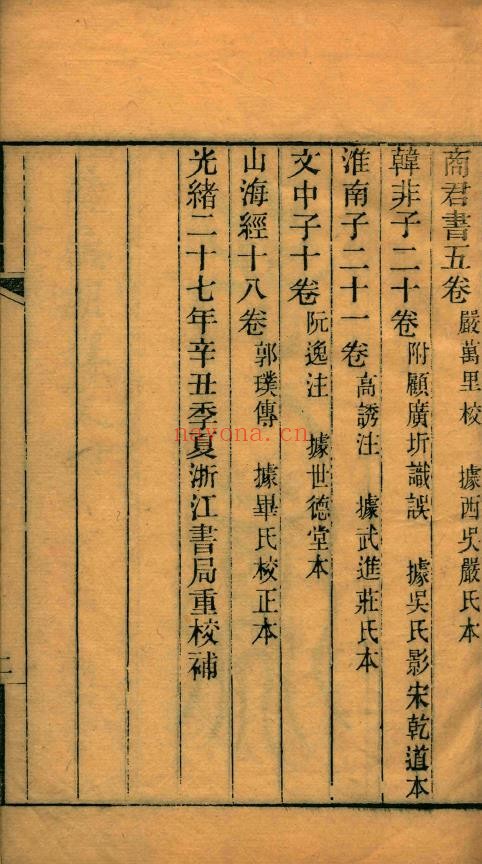 商君書五卷 嚴萬里校 據西吳嚴氏本
韓非子二十卷 附顧廣圻識誤 據吳氏影宋乾道本
淮南子二十一卷 高誘注 據武進莊氏本
文中子十卷 阮逸注 據世德堂本
山海經十八卷 郭璞傳 據畢氏校正本
光緒二十七年辛丑季夏浙江書局重校補
二
nayona.cn